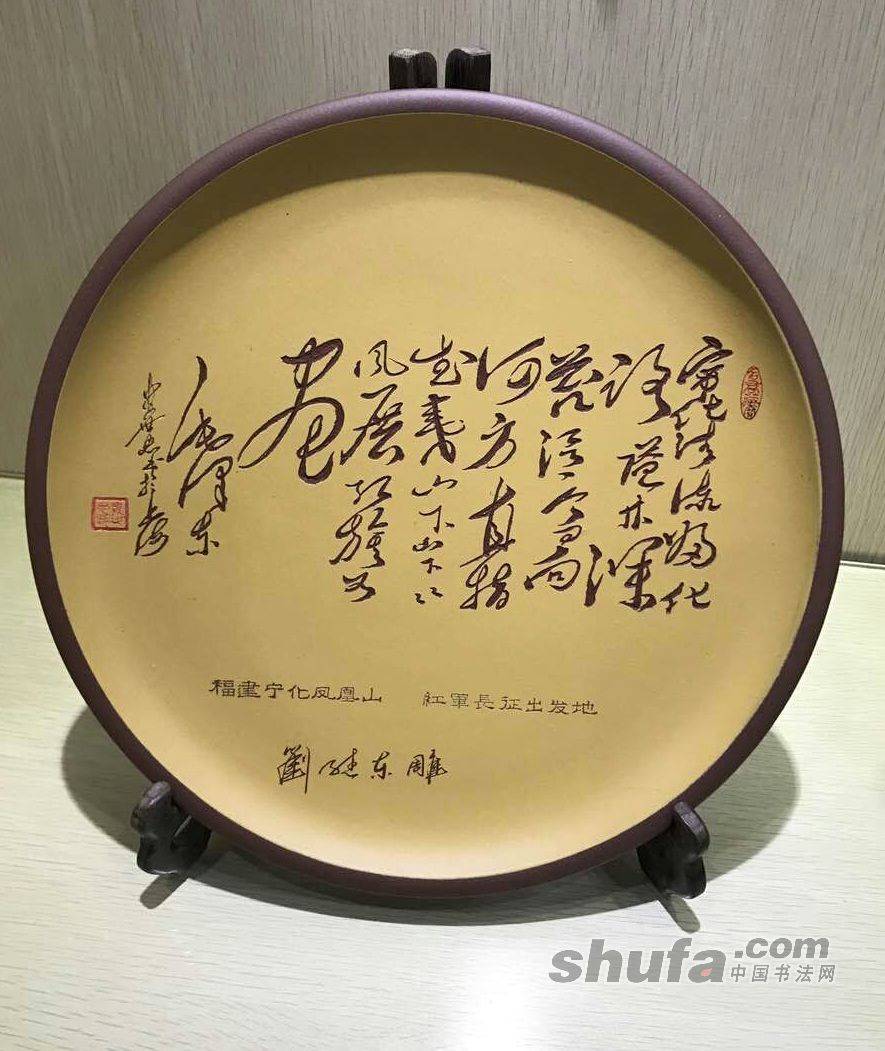 寧化清流歸化
路隘林深
苔滑今日向
何方直指
武夷山下山下〻〻
风展红旗如
畫
毛泽东
书于上海
福建宁化凤凰山 紅軍長征出发地
劉继东雕
shufa.com
中国书法网